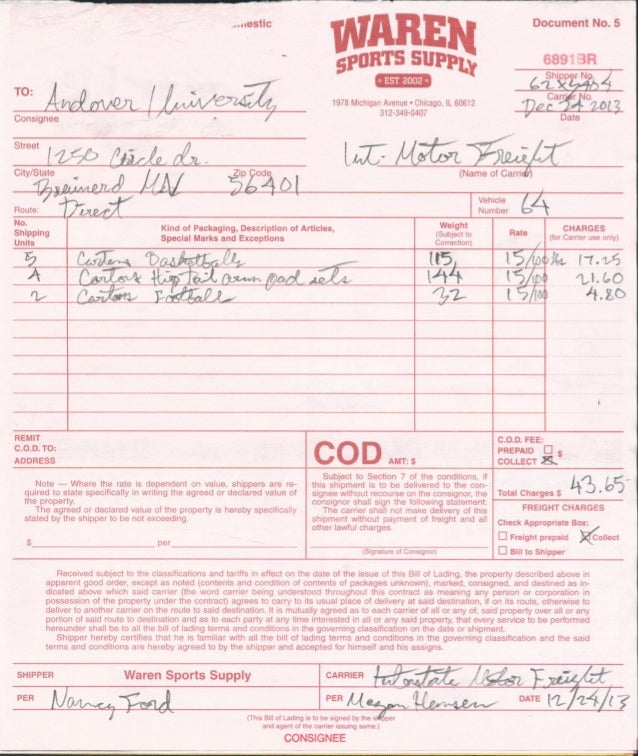 mestic
WAREN
SPORTS SUPPLY
EST 2002
1978 Michigan Avenue • Chicago, IL 60612
312-349-0407
Document No. 5
6891BR
Shipper No.
Carrier No.
Dec 24 2013
Date
TO: Andover University
Consignee
Street
1250 Circle dr.
Int. Motor Freight
(Name of Carrier)
City/State
Zip Code
Brainerd MN 56401
Route: Direct
Vehicle
Number 64
No.
Shipping
Units
Kind of Packaging, Description of Articles,
Special Marks and Exceptions
Weight
(Subject to
Correction)
Rate
CHARGES
(for Carrier use only)
5 Cartons Basketballs 115 15/100 lbs 17.25
4 Cartons Hip, tail arm pad sets 144 15/100 21.60
2 Cartons Football 32 15/100 4.80
REMIT
C.O.D. TO:
ADDRESS
COD AMT: $
C.O.D. FEE:
PREPAID $
COLLECT
Note — Where the rate is dependent on value, shippers are re-
quired to state specifically in writing the agreed or declared value of
the property.
The agreed or declared value of the property is hereby specifically
stated by the shipper to be not exceeding.
$ per
Subject to Section 7 of the conditions, if
this shipment is to be delivered to the con-
signee without recourse on the consignor, the
consignor shall sign the following statement:
The carrier shall not make delivery of this
shipment without payment of freight and all
other lawful charges.
(Signature of Consignor)
Total Charges $ 43.65
FREIGHT CHARGES
Check Appropriate Box:
Freight prepaid Collect
Bill to Shipper
Received subject to the classifications and tariffs in effect on the date of the issue of this Bill of Lading, the property described above in
apparent good order, except as noted (contents and condition of contents of packages unknown), marked, consigned, and destined as in-
dicated above which said carrier (the word carrier being understood throughout this contract as meaning any person or corporation in
possession of the property under the contract) agrees to carry to its usual place of delivery at said destination, if on its route, otherwise to
deliver to another carrier on the route to said destination. It is mutually agreed as to each carrier of all or any of, said property over all or any
portion of said route to destination and as to each party at any time interested in all or any said property, that every service to be performed
hereunder shall be to all the bill of lading terms and conditions in the governing classification on the date or shipment.
Shipper hereby certifies that he is familiar with all the bill of lading terms and conditions in the governing classification and the said
terms and conditions are hereby agreed to by the shipper and accepted for himself and his assigns.
SHIPPER Waren Sports Supply
CARRIER Interstate Motor Freight
PER Nancy Ford
PER Megan Hensen DATE 12/24/13
(This Bill of Lading is to be signed by the shipper
and agent of the carrier issuing same.)
CONSIGNEE